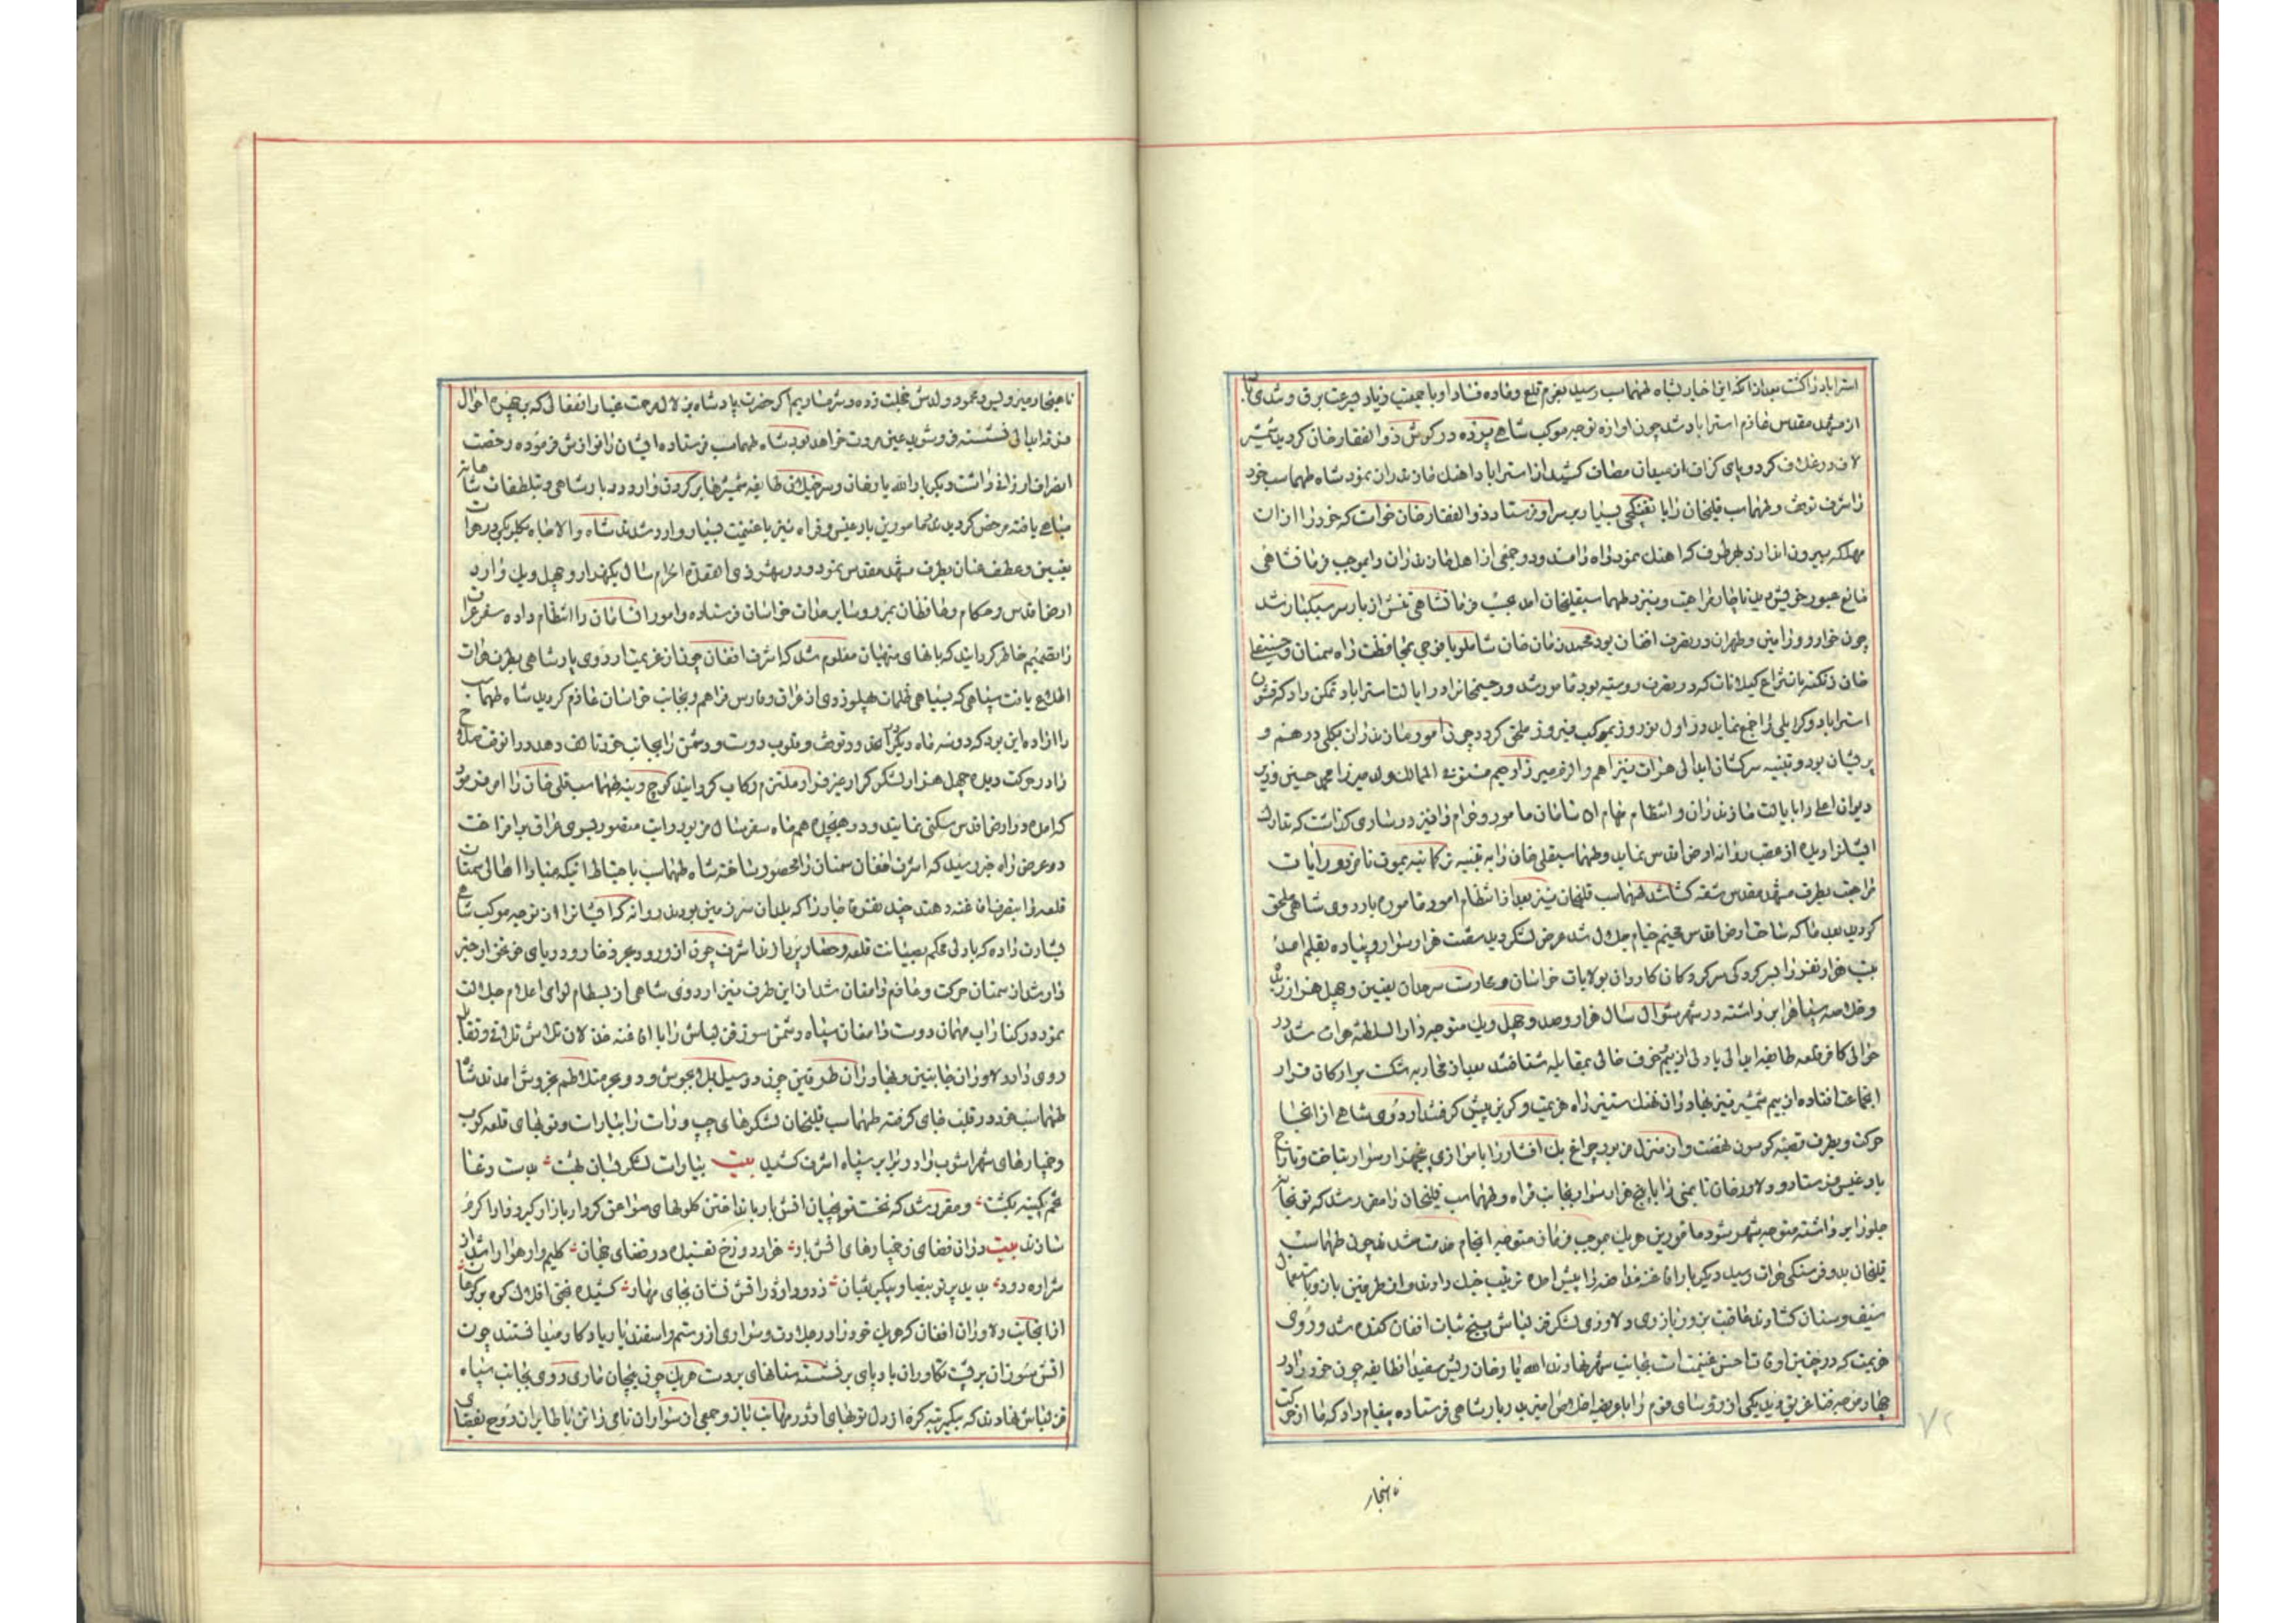 استراباد زا کشت بعد از انکه این اخبار بشاه طهماسب رسید بعزم قلع و ماده فساد او با جمعیت زیاد بسرعت برق و شدی
از مشهد مقدس عازم استراباد شد چون اوازه توجه موکب شاهی پرده در کوش ذوالفقار خان کردید شمشیر
لاف در غلاف کرد و پای کزاف از میدان مصاف کشید از استراباد اهنک مازندران نمود شاه طهماسب خود
در اشرف توقف و طهماسب قلیخان را با تفنکچی بسیار بر سر او فرستاد ذوالفقار خان خواست که خود را از ان
مهلکه بیرون اندازد بهر طرف که اهنک نمود راه را مسدود و جمعی از اهل مازندران را بموجب فرمان شاهی
مانع عبور خویش دید ناچار مراجعت و بنزد طهماسبقلیخان امد بحسب فرمان شاهی تنش از بار سر سبکبار شد
چون خوار و ورامین و طهران در تصرف افغان بود محمد زمان خان شاملو با فوجی بمحافظت راه سمنان و حسینقلی
خان زنکنه بانتزاع کیلانات که در تصرف روسیه بود مامور شد و رحیمخان را در ایالت استراباد تمکن داد که قشون
استراباد و کرایلی را جمع نماید در اول نوروز بموکب فیروز ملحق کردد چون امور مازندران بکلی در هم و
پریشان بود و تنبیه سرکشان ابدالی هرات نیز اهم و الزم میرزا رحیم مستوفی الممالک ولد میرزا محمد حسین وزیر
دیوان اعلی را بایالت مازندران و انتظام مهام ان سامان مامور و خرام را نیز در ساری کذاشت که تدارک
ایشان را دیده از عقب روانه ارض اقدس نماید و طهماسبقلی خان را به تنبیه ترکمانیه یموت نامزد و رایات
مراجعت بطرف مشهد مقدس شقه کشا شد طهماسب قلیخان نیز بعد از انتظام امور ماموره باردوی شاهی ملحق
کردید بعد ما که ساحت ارض اقدس مخیم خیام جلال شد عرض لشکر دید شصت هزار سوار و پیاده بقلم امد
بیست هزار نفر را بسرکردکی سرکردکان کاردان بولایات خراسان و حراست سرحدات تعیین و چهل هزار نفر
و خلاصه سپاه را برداشته در شهر شوال سال هزار و صد و چهل و یک متوجه دار السلطنه هرات شد در
حوالی کافر قلعه طایفه ابدالی با دلی از بیم و خوف خالی بمقابله شتافتند بعد از محاربه شکست بر ارکان قرار
اجتماعت افتاده از بیم شمشیر تیز بهادران نهنک ستیز راه هزیمت و کریز پیش کرفتند اردوی شاهی از انجا
حرکت و بطرف قصبه کوسون نهضت و از ان منزل مزبور چراغ بیک افشار را با موازی پنجهزار سوار بتاخت و تاراج
بادغیس فرستاد و دلاور خان تایمنی را با پنج هزار سوار بجانب فراه و طهماسب قلیخان را مقرر شد که توپخانه
جلو را برداشته متوجه شهر شود مامورین هریک بموجب فرمان متوجه انجام خدمت شدند چون طهماسب
قلیخان بدو فرسنکی هرات رسید دیکر بار افاغنه غدار ضرر را پیش امده ترتیب جنک دادند و از طرفین بازو باستعمال
سیف و سنان کشادند عاقبت بزور بازوی دلاوری لشکر قزلباش بیخ ثبات افغان کنده شد و روی
هزیمت که در چنین اوقات احسن غنیمت است بجانب شهر نهادند الله یار خان رئیس سفید انطایفه چون خود را در
چهار موجه فنا غریق دید یکی از روسای قوم را با عریضه اخلاص امیز بدربار شاهی فرستاده پیغام داد که ما از حرکت
ناهنجار
۷۲
ناهنجار میرویس و محمود ولدش خجلت زده و شرمساریم اکر حضرت پادشاه بزلال مرحمت غبار انفعالی که بر چهره احوال
من و ابدالی نشسته فروشوید عین مروت خواهد بود شاه طهماسب فرستاده ایشان را نوازش فرموده رخصت
انصراف ارزانی داشت دیکر بار الله یار خان و سرخیلان طایفه شمشیرها بر کردن وارد دربار شاهی و بتلطفات شاهانه
مباهی یافته مرخص کردیدند مامورین بادغیس و فراه نیز با غنیمت بسیار وارد شدند شاه والاجاه بیکلربیکی در هرات
تعیین و عطف عنان بطرف مشهد مقدس نمود و در شهر ذی القعدة الحرام سال یکهزار و چهل و یک وارد
ارض اقدس و حکام و محافظان بمرو و سایر محالات خراسان فرستاده و امور ان سامان را انتظام داده سفر عراق
را تصمیم خاطر کردانید که بانهای منهیان معلوم شد که اشرف افغان چون از عزیمت اردوی پادشاهی بطرف هرات
اطلاع یافت سپاهی که بسیاهی ظلمات پهلو زدی از عراق و فارس فراهم و بجانب خراسان عازم کردید شاه طهماسب
را اراده این بود که دو سه ماه دیکر در انحدود توقف و قلوب دوست و دشمن را بجانب خود تالف دهد در انوقت صلاح
را در حرکت دیده چهل هزار لشکر کرار غیر فرار ملتزم رکاب کردانید کوچ و بنه طهماسب قلی خان را امر فرمود
که امده در ارض اقدس سکنی نمایند و در هیجدهم ماه صفر سال مزبور رایت منصور بسوی عراق برافراخت
در عرض راه خبر رسید که اشرف افغان سمنان را محصور ساخته شاه طهماسب باحتیاط انیکه مبادا اهالی سمنان
قلعه را بتصرف افاغنه دهند چند نفر قاصدان را که بلدان سرزمین بودند روانه که ایشان را از توجه موکب شاهی
بشارت داده که با دلی محکم بصیانت قلعه و حصار پردازند اشرف چون از ورود بحر ذخار و دریای خونخوار خبر
دار شد از سمنان حرکت و عازم دامغان شد از این طرف نیز اردوی شاهی از بسطام لوای اعلام جلالت
نمود در کنار اب مهمان دوست دامغان سپاه دشمن سوز قزلباش را با افاغنه خذلان تلاش تلاقی و تقابل
روی داد دلاوران جانبین و بهادران طرفین چون دو سیل بلا بجوش و دو بحر متلاطم بخروش امدند شاه
طهماسب خود در قلب جای کرفته طهماسب قلیخان لشکرهای چپ و راست را بیارات و توپهای قلعه کوب
و خپارهای شهر اشوب را در برابر سپاه اشرف کشید بیت بیاراست لشکر قیان بهشت بدست دغا
تخم کینه بکشت و مقرر شد که نخست توپچیان اتش بار بانداختن کلولهای صواعق کردار بازار کیر و دار را کرم
سازند بیت دران فضای ز خپارهای اتش بار هزار دوزخ تفسیده در فضای جهان کلیم وار هزار اشدر از
شراره دود بدید پرتو بیضا و پیکر ثعبان ز دود اژدر اتش فشان بجای بهار کشیده بختی افلاک کوه بر کوهان
از انجانب دلاوران افغان که هریک خود را در جلادت و سواری از رستم و اسفندیار یادکار میدانستند چون
اتش سوزان بر پشت تکاوران بادپای بر نشسته سنانهای بردست هریک چون پیچان ماری روی بجانب سپاه
قزلباش نهادند که بیکمرتبه کره از دل توپهای اژدر مهابت باز و جمعی از سواران نامی را تن با طایران روح بفضای